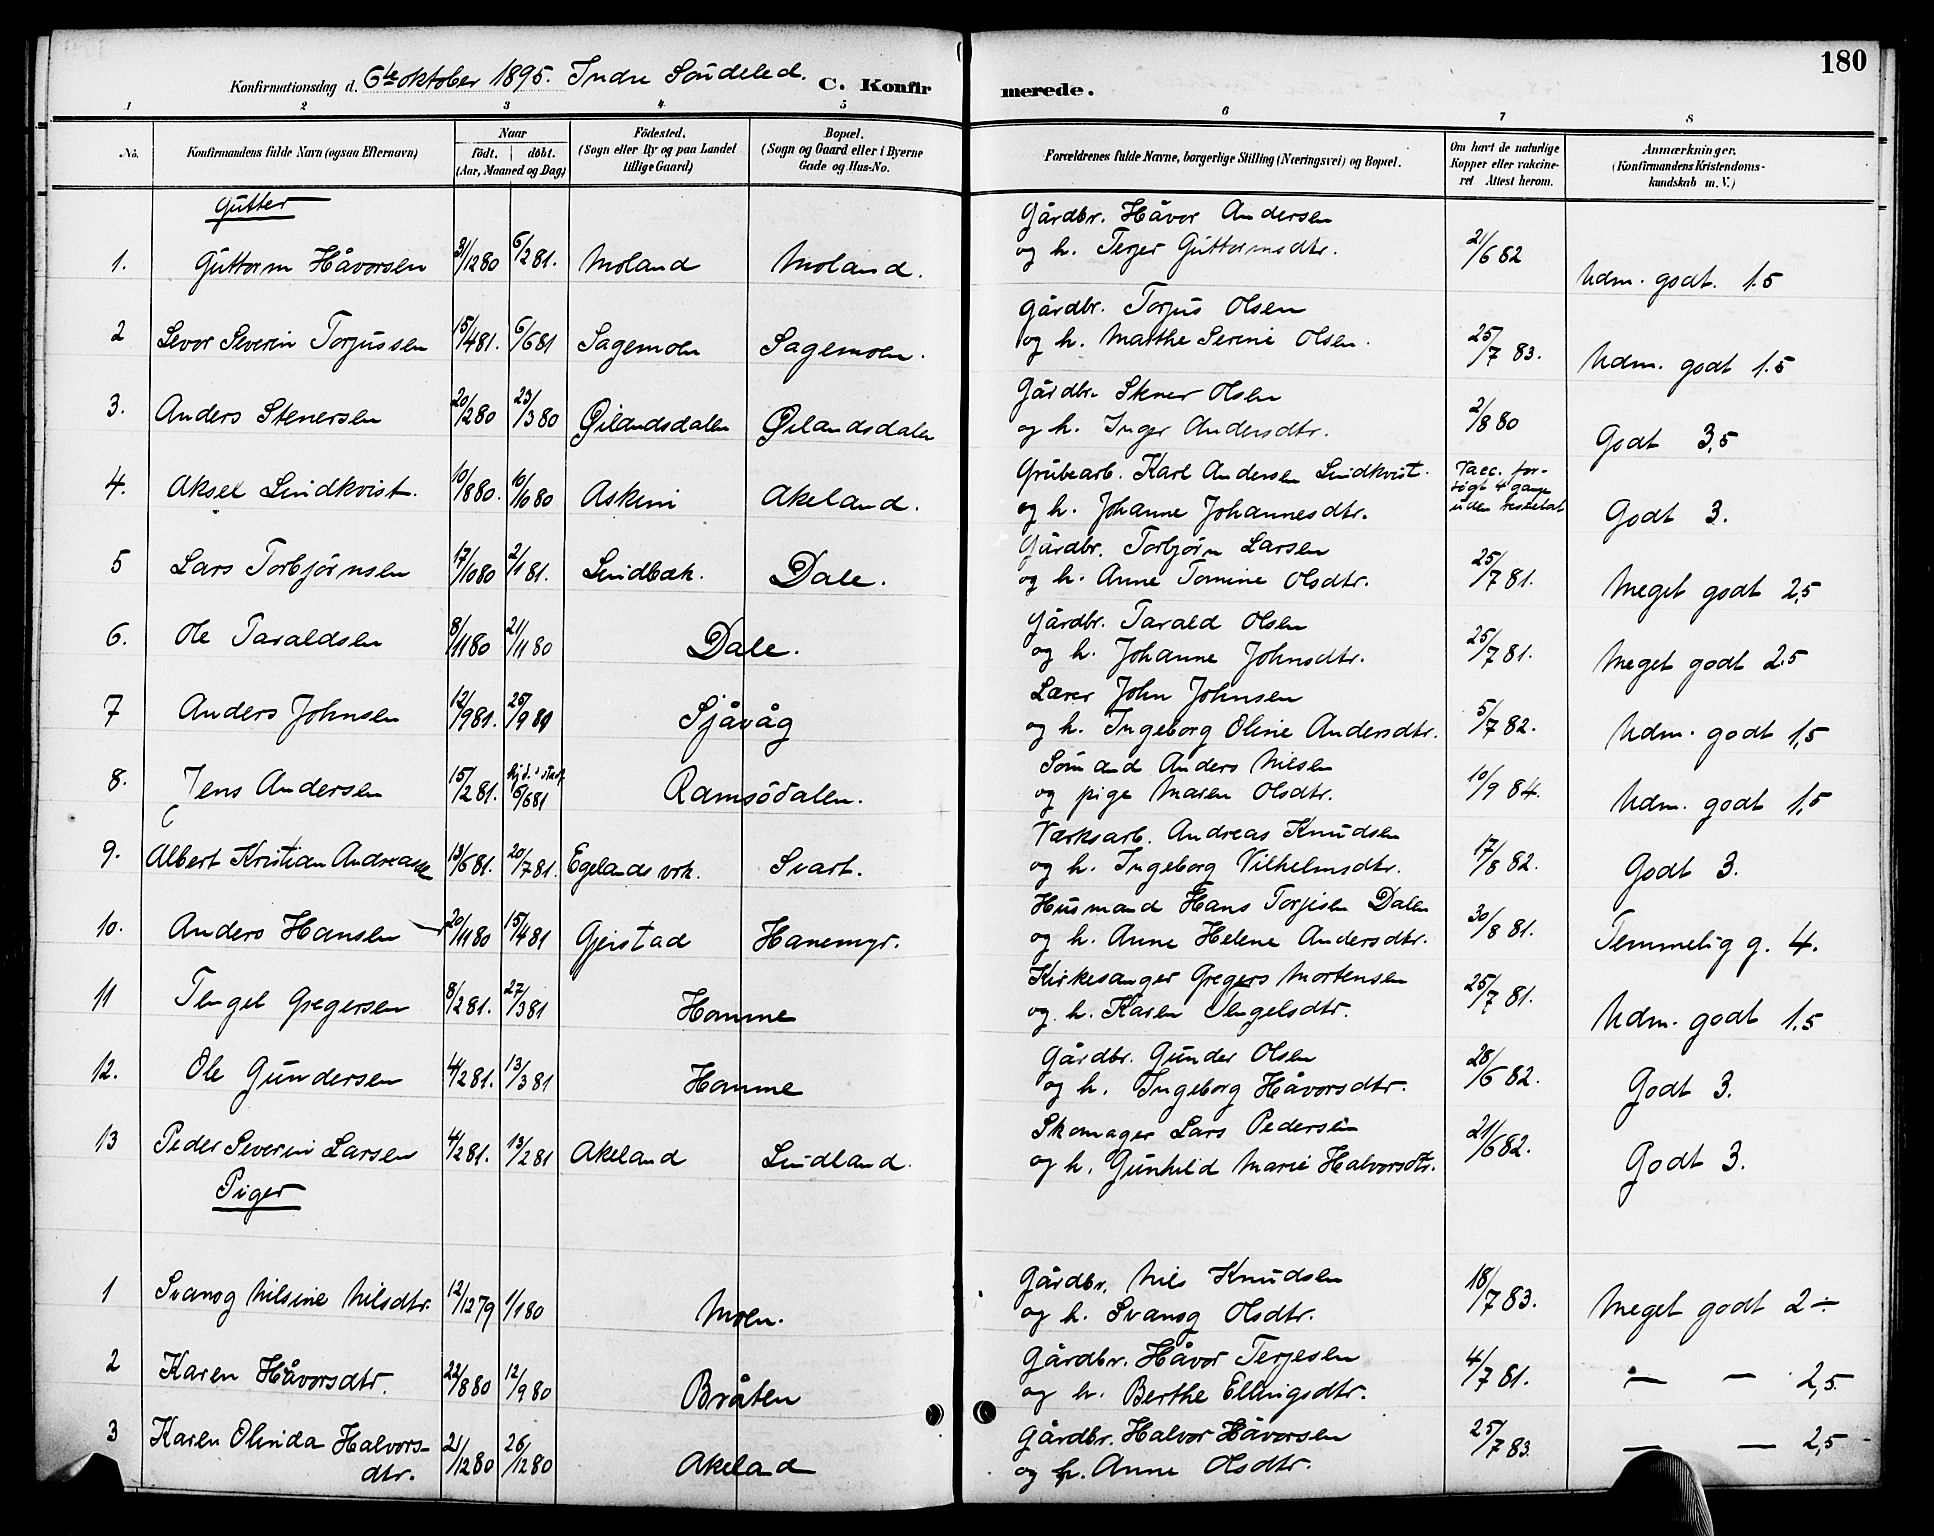 180
Konfirmationsdag d. 6te oktober 1895. Indre Söndeled. C. Konfirmerede.
1 2 3 4 5 6 7 8
No. Konfirmandens fulde Navn (ogsaa Efternavn) Naar födt. döbt. (Aar, Maaned og Dag) Födested. (Sogn eller By og paa Landet tillige Gaard) Bopæl. (Sogn og Gaard eller i Byerne Gade og Hus-No. Forældrenes fulde Navne, borgerlige Stilling (Næringsvei) og Bopæl. Om havt de naturlige Kopper eller vakcineret Attest herom. Anmærkninger. (Konfirmandens Kristendomskundskab m. V.)
Gutter
Gårdbr. Håvor Andersen
1. Guttorm Håvorsen 31/12 80 6/2 81. Moland Moland. og h. Terjer Guttormsdtr. 21/6 82 Udm. godt. 1.5
Gårdbr. Torjus Olsen
2 Sevor Severin Torjussen 15/4 81. 6/6 81 Sagemoen Sagemoen. og h. Marthe Serine Olsen. 25/7 83. Udm. godt 1.5
Gårdbr. Stener Olsen
3. Anders Stenersen 20/2 80 23/3 80 Øilandsdalen Øilandsdalen og h. Inger Andersdtr. 2/8 80 Godt 3,5
Grubearb. Karl Andersen Lindkvist. Vacc. for-
4. Aksel Lindkvist. 10/8 80. 10/10 80 Askim Akeland. og h. Johanne Johannesdtr. søgt 4 gange uden resultat Godt 3.
Gårdbr. Torbjørn Larsen
5 Lars Torbjørnsen 17/10 80 2/1 81. Lindbæk. Dale. og h. Anne Tomine Olsdtr. 25/7 81. Meget godt 2,5
Gårdbr. Tarald Olsen
6. Ole Taraldsen 8/11 80 21/11 80 Dale. og h. Johanne Johnsdtr. 25/7 81. Meget godt 2.5
Lærer John Johnsen
7 Anders Johnsen 12/9 81. 25/9 81 Sjåvåg og h. Ingeborg Oline Andersdtr. 5/7 82. Udm. godt 1,5
Sömand Anders Nilsen
8. Jens Andersen 15/2 81. hjd. stadf. 6/6 81 Ramsödalen. og pige Maren Olsdtr. 10/9 84. Udm. godt 1,5
Værksarb. Andreas Knudsen
9. Albert Kristian Andreassen 13/6 81. 20/7 81. Egelands vrk. Svart. og h. Ingeborg Vilhelmsdtr. 17/8 82. Godt 3.
Husmand Hans Torjisen Dalen
10. Anders Hansen 20/11 80 15/4 81 Gjerstad Hanemyr. og h. Anne Helene Andersdtr. 30/8 81. Temmelig g. 4.
Kirkesanger Gregers Mortensen
11 Tengel Gregersen 8/2 81. 27/3 81 Homme og h. Karen Tengelsdtr. 25/7 81. Udm. godt 1.5
Gårdbr. Gunder Olsen
12. Ole Gundersen 4/2 81. 13/3 81 Homme og h. Ingeborg Håvorsdtr. 28/6 82. Godt 3.
Skomager Lars Pedersen
13 Peder Severin Larsen 4/2 81. 13/2 81 Akeland Lindland. og h. Gunhild Marie Halvorsdtr. 21/6 82. Godt 3.
Piger
Gårdbr. Nils Knudsen
1 Svanog Nilsine Nilsdtr. 12/12 79 1/1 80 Moen. og h. Svanog Olsdtr. 18/7 83. Meget godt 2 ÷
Gårdbr. Håvor Terjesen
2 Karen Håvorsdtr. 22/8 80 12/9 80 Bråten og h. Berthe Ellingsdtr. 4/7 81. — — 2,5.
Gårdbr. Halvor Håvorsen
3 Karen Olinda Halvors- 21/12 80 26/12 80 Akeland og h. Anne Olsdtr. 25/7 83. — — 2,5
dtr.